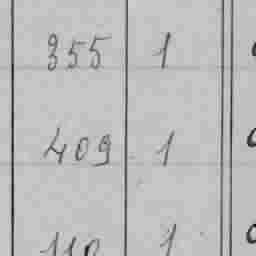 355 1
409 1
110 1